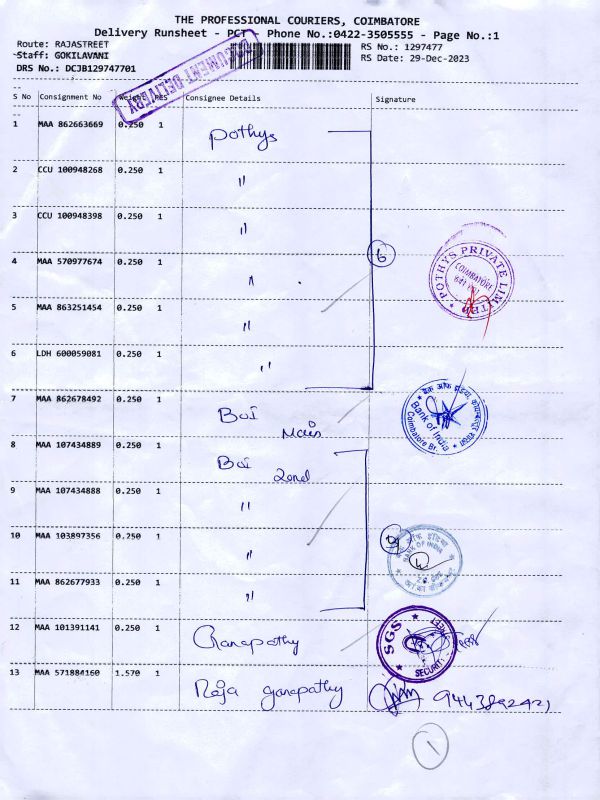 THE PROFESSIONAL COURIERS, COIMBATORE
Delivery Runsheet - PCT - Phone No.:0422-3505555 - Page No.:1
Route: RAJASTREET
Staff: GOKILAVANI
DRS No.: DCJB129747701
RS No.: 1297477
RS Date: 29-Dec-2023
DOCUMENT DELIVERY
S No Consignment No Weight PES Consignee Details Signature
1 MAA 862663669 0.250 1 Pothys
2 CCU 100948268 0.250 1 "
3 CCU 100948398 0.250 1 "
6
4 MAA 570977674 0.250 1 "
POTHYS PRIVATE LIMITED
COIMBATORE
5 MAA 863251454 0.250 1 "
6 LDH 600059081 0.250 1 "
7 MAA 862678492 0.250 1 BOI Main
Bank of India
Coimbatore Br.
8 MAA 107434889 0.250 1 BOI Zonal
9 MAA 107434888 0.250 1 "
10 MAA 103897356 0.250 1 "
BANK OF INDIA
4
11 MAA 862677933 0.250 1 "
12 MAA 101391141 0.250 1 Ganapathy
SGS
SECURIT
13 MAA 571884160 1.570 1 Raja ganapathy
1